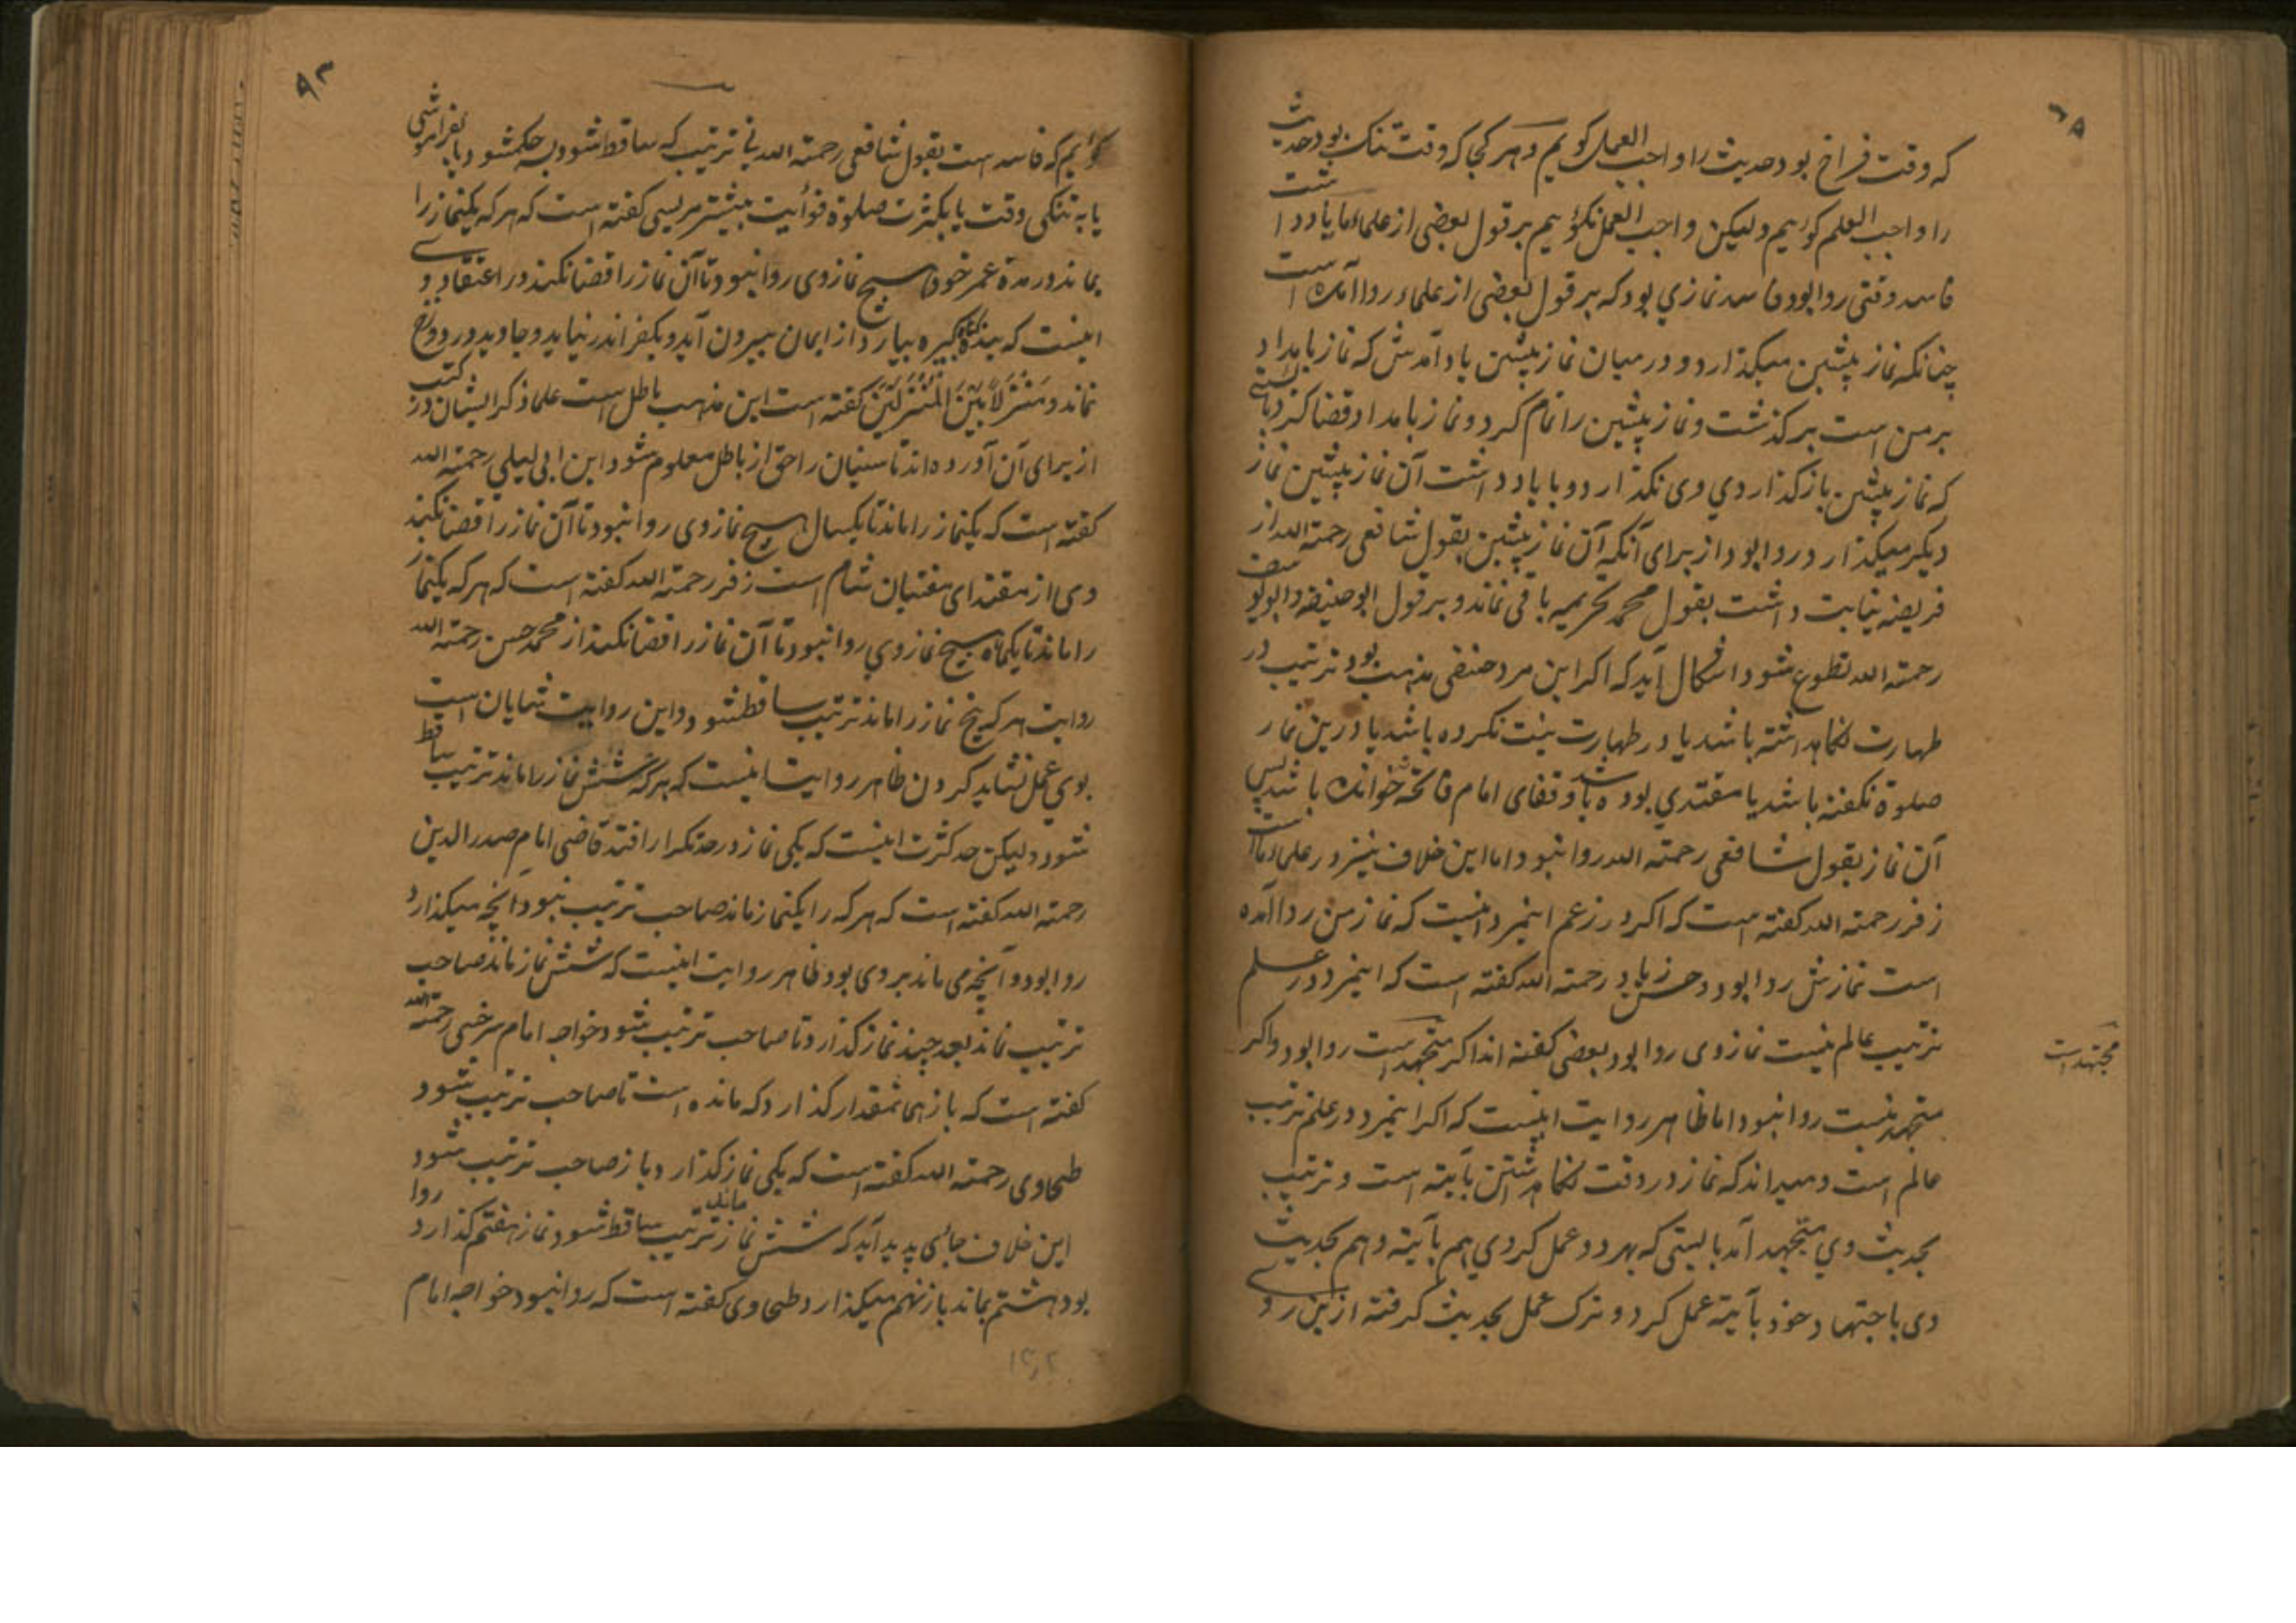 که وقت فراخ بود حدیث را واجب العمل کوییم و هر کجا که وقت تنک بود حدیث
را واجب العلم کوئیم ولیکن واجب العمل نکوئیم بر قول بعضی از علماء ما یاد داشت
فاسد وقتی روا بود فاسد نمازی بود که بر قول بعضی از علماء روا آمده است
چنانکه نماز پیشین میکذارد و در میان نماز پیشین یاد آمدش که نماز بامداد
بر من است برکذشت و نماز پیشین را تمام کرد و نماز بامداد قضا کرد بایستی
که نماز پیشین باز کذاردی وی نکذارد و با یاد داشت آن نماز پیشین نماز
دیکر میکذارد روا بود از برای آنکه آن نماز پیشین بقول شافعی رحمته الله از
فریضه نیابت داشت بقول محمد تحریمیه باقی نماند و بر قول ابوحنیفه و ابویوسف
رحمته الله تطوع شود اشکال آید که اکر این مرد حنفی مذهب بود ترتیب در
طهارت نکاه داشته باشد یا در طهارت نیت نکرده باشد یا درین نماز
صلوة نکفته باشد یا مقتدی بوده باشد و قفای امام فاتحه خوانده باشد پس
آن نماز بقول شافعی رحمته الله روا نبود اما این خلاف نیز در علماء ما است
زفر رحمته الله کفته است که اکر در زعم اینمرد اینست که نماز من روا آمده
است نمازش روا بود و حسن زیاد رحمته الله کفته است که اینمرد در علم
ترتیب عالم نیست نماز وی روا بود بعضی کفته اند اکر متجهد است روا بود و اکر
مجتهد است
متجهد نیست روا نبود اما ظاهر روایت اینست که اکر اینمرد در علم ترتیب
عالم است و میداند که نماز در وقت نکاه داشتن بآیته است و ترتیب
بحدیث وی متجهد آمد بایستی که بهر دو عمل کردی هم بآیته و هم بحدیث
وی باجتهاد خود بآیته عمل کرد و ترک عمل بحدیث کرفته ازین روی
۹۳
کوئیم که فاسد است بقول شافعی رحمته الله نی ترتیب که ساقط شود بچه حکم شود یا بفراموشی
یا به تنکی وقت یا بکثرت صلوة فوائیت بیشتر مریسی کفته است که هر که یکنماز را
بماند در مدة عمر خود هیچ نماز وی روا نبود تا آن نماز را قضا نکند در اعتقاد وی
اینست که بنده کناه کبیره بیارد از ایمان بیرون آید و بکفر اندر نیاید و جاوید در دوزخ
نماند و منزلا بین المنزلین کفته است این مذهب باطل است علما ذکر ایشان در کتب
از برای آن آورده اند تا سنیان را حق از باطل معلوم شود ابن ابی لیلی رحمته الله
کفته است که یکنماز را ماند تا یکسال هیچ نماز وی روا نبود تا آن نماز را قضا نکند
وی از مقتدای مفتیان شام است زفر رحمته الله کفته است که هر که یکنماز
را ماند تا یکماه هیچ نماز وی روا نبود تا آن نماز را قضا نکند از محمد حسن رحمته الله
روایت هر که پنج نماز را ماند ترتیب ساقط شود و این روایت شایان است
بوی عمل نشاید کردن ظاهر روایت اینست که هر که شش نماز را ماند ترتیب ساقط
شود و لیکن حد کثرت اینست که یکی نماز در حد تکرار افتد قاضی امام صدر الدین
رحمته الله کفته است که هر که را یکنماز ماند صاحب ترتیب نبود آنچه میکذارد
روا بود و آنچه می ماند بر وی بود ظاهر روایت اینست که شش نماز ماند صاحب
ترتیب نماند بعد چند نماز کذارد تا صاحب ترتیب شود خواجه امام سرخسی رحمته الله
کفته است که باز همانمقدار کذارد که مانده است تا صاحب ترتیب شود
طحاوی رحمته الله کفته است که یکی نماز کذارد باز صاحب ترتیب شود
این خلاف جائی پدید آید که شش نماز ماند ترتیب ساقط شود نماز هفتم کذارد روا
بود هشتم بماند باز نهم میکذارد طحاوی کفته است که روا نبود خواجه امام